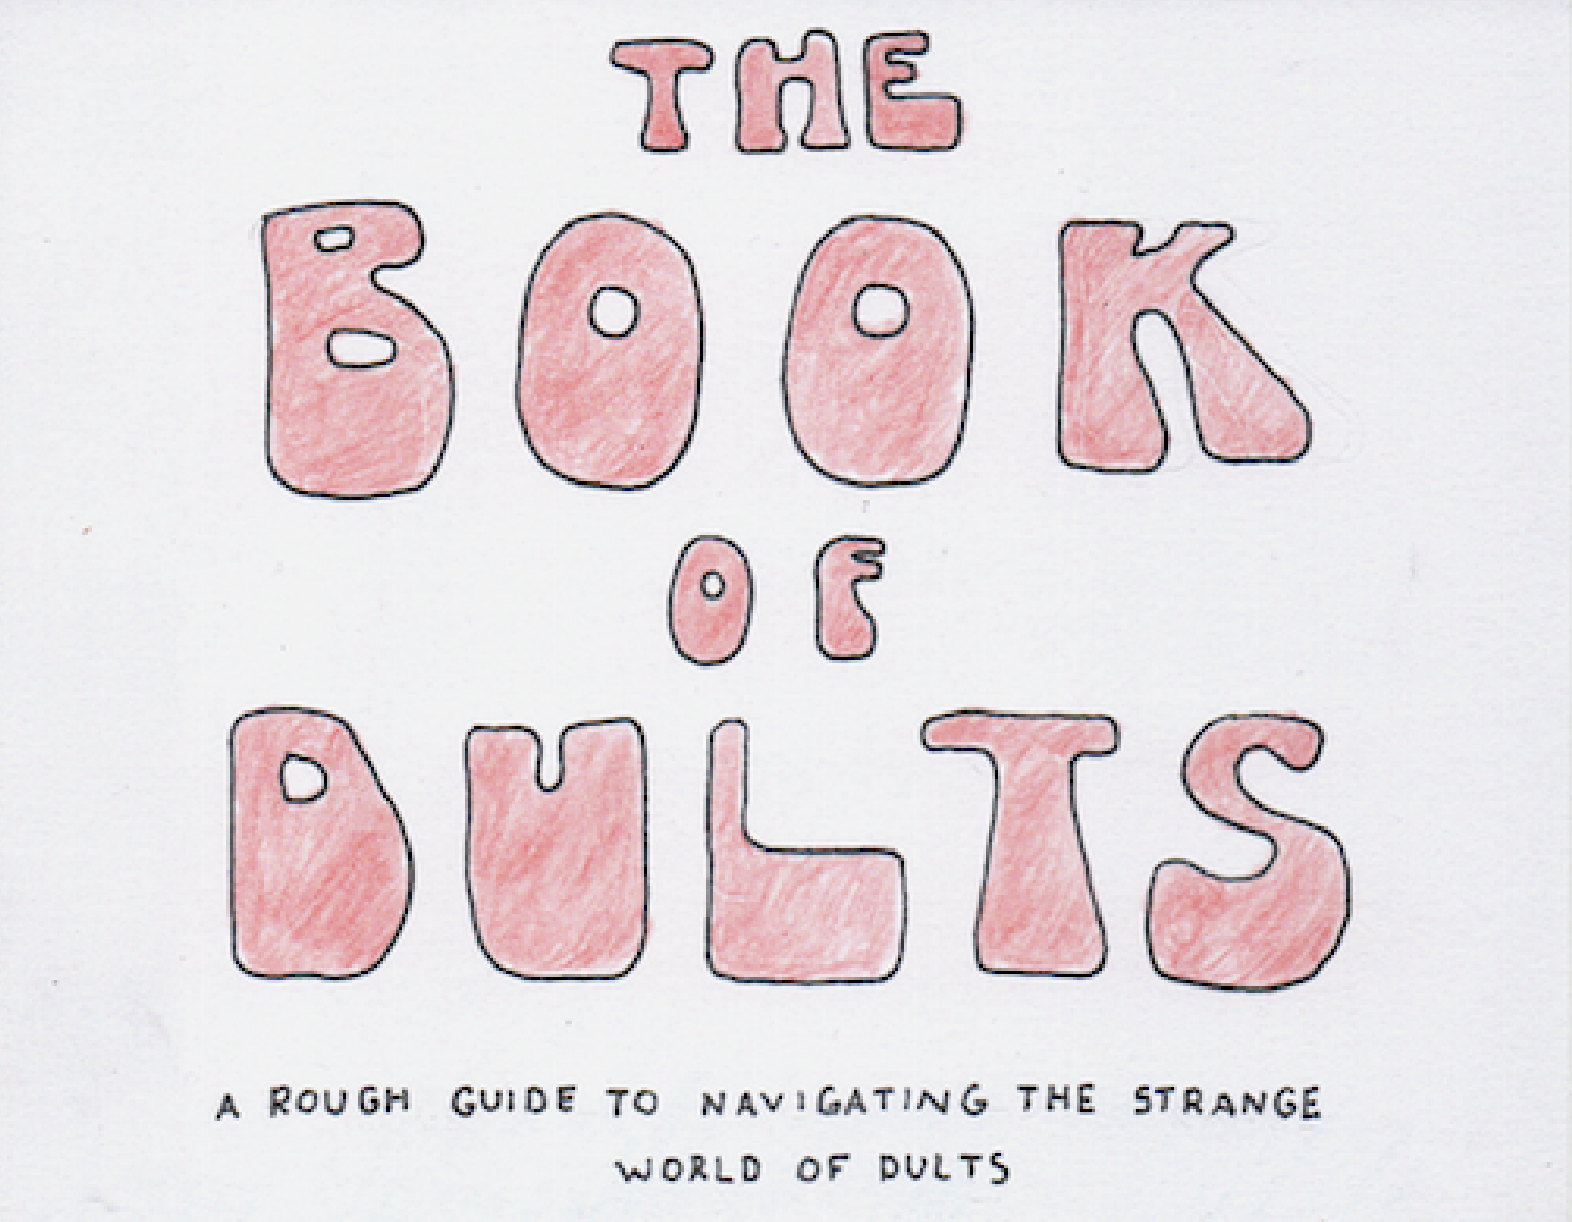 THE
BOOK
OF
DULTS
A ROUGH GUIDE TO NAVIGATING THE STRANGE
WORLD OF DULTS